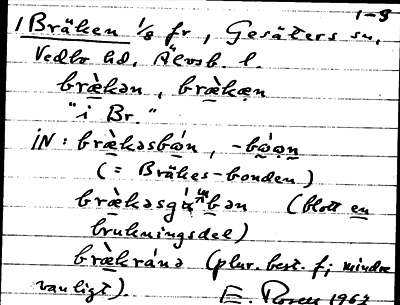 1-8
1 Bräken 1/8 fr, Gesäters sn,
Vedbo hd, Älvsb. l.
brækən, brækæn
"i Br."
iN: brækəsbón, -bóọn
(= Bräkes-bonden)
brækəsgu bən (blott en
brukningsdel)
brækránə (plur. best. f; mindre
vanligt). E. Rosell 1962